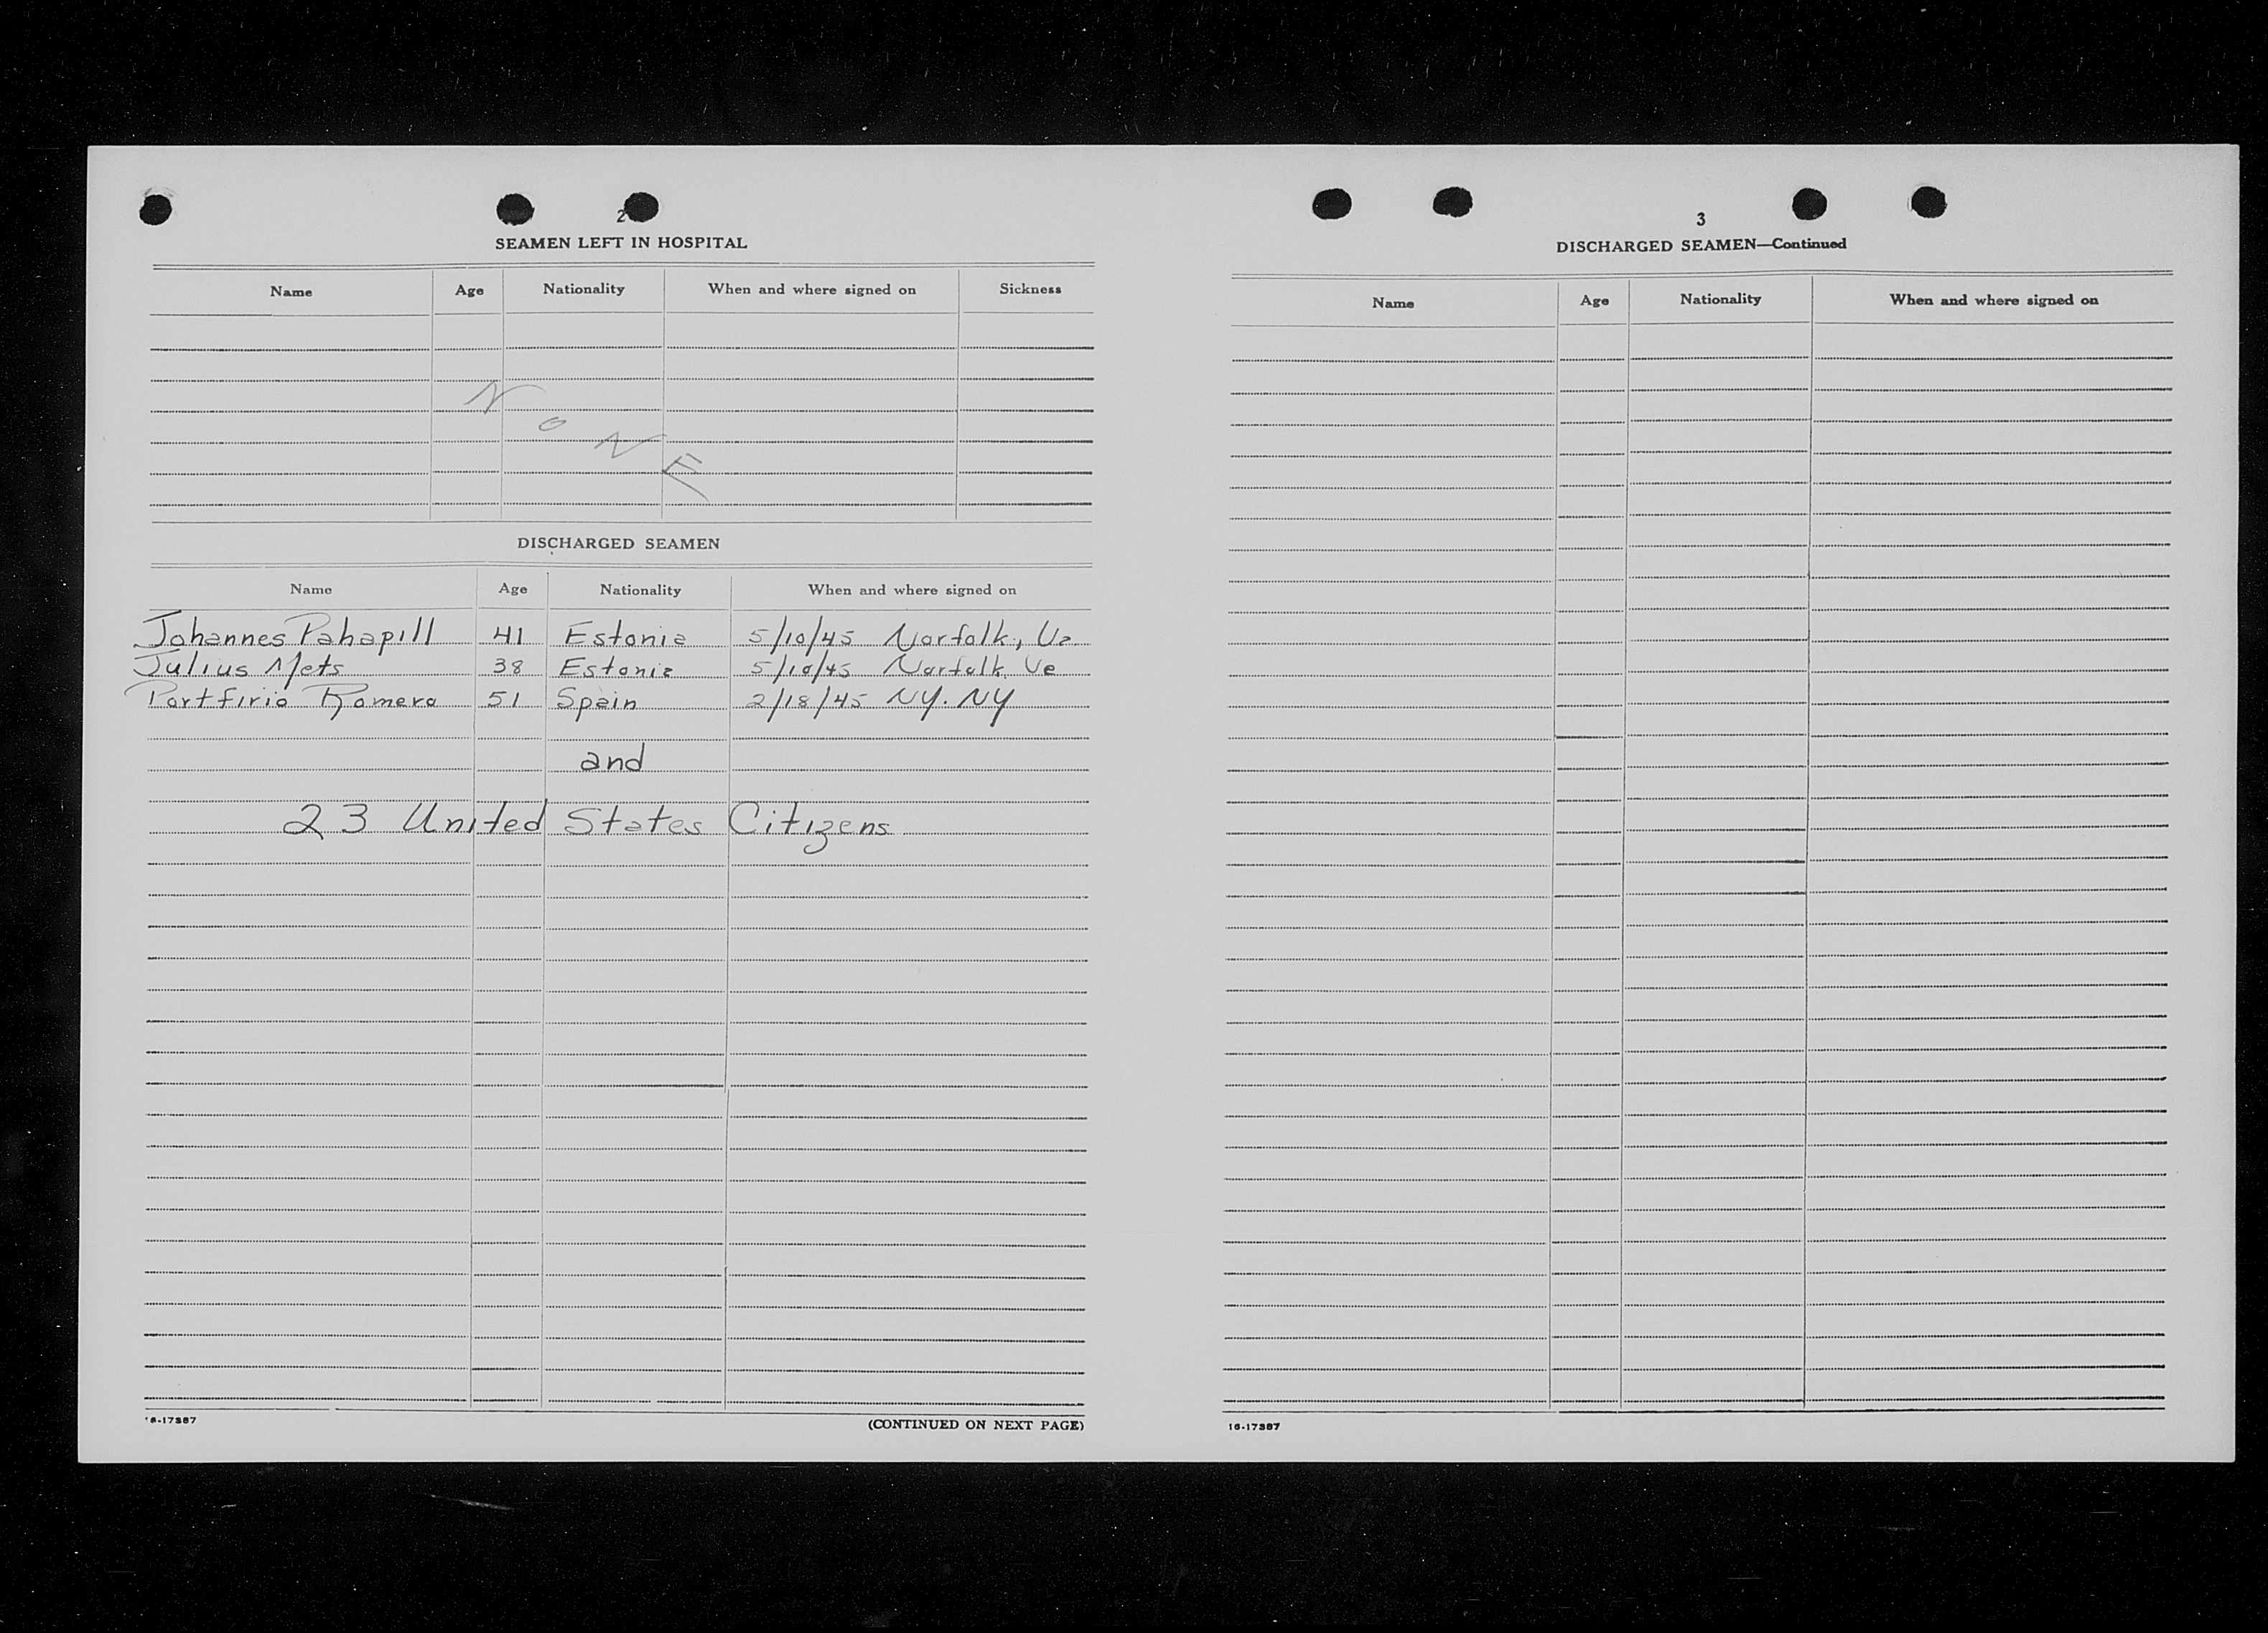 2
SEAMEN LEFT IN HOSPITAL
Name Age Nationality When and where signed on Sickness
NONE
DISCHARGED SEAMEN
Name Age Nationality When and where signed on
Johannes Pahapill 41 Estonia 5/10/45 Norfolk, Va.
Julius Mets 38 Estonia 5/10/45 Norfolk, Va
Portfirio Romero 51 Spain 2/18/45 NY. NY
and
23 United States Citizens
16-17387
(CONTINUED ON NEXT PAGE)
3
DISCHARGED SEAMEN—Continued
Name Age Nationality When and where signed on
16-17387